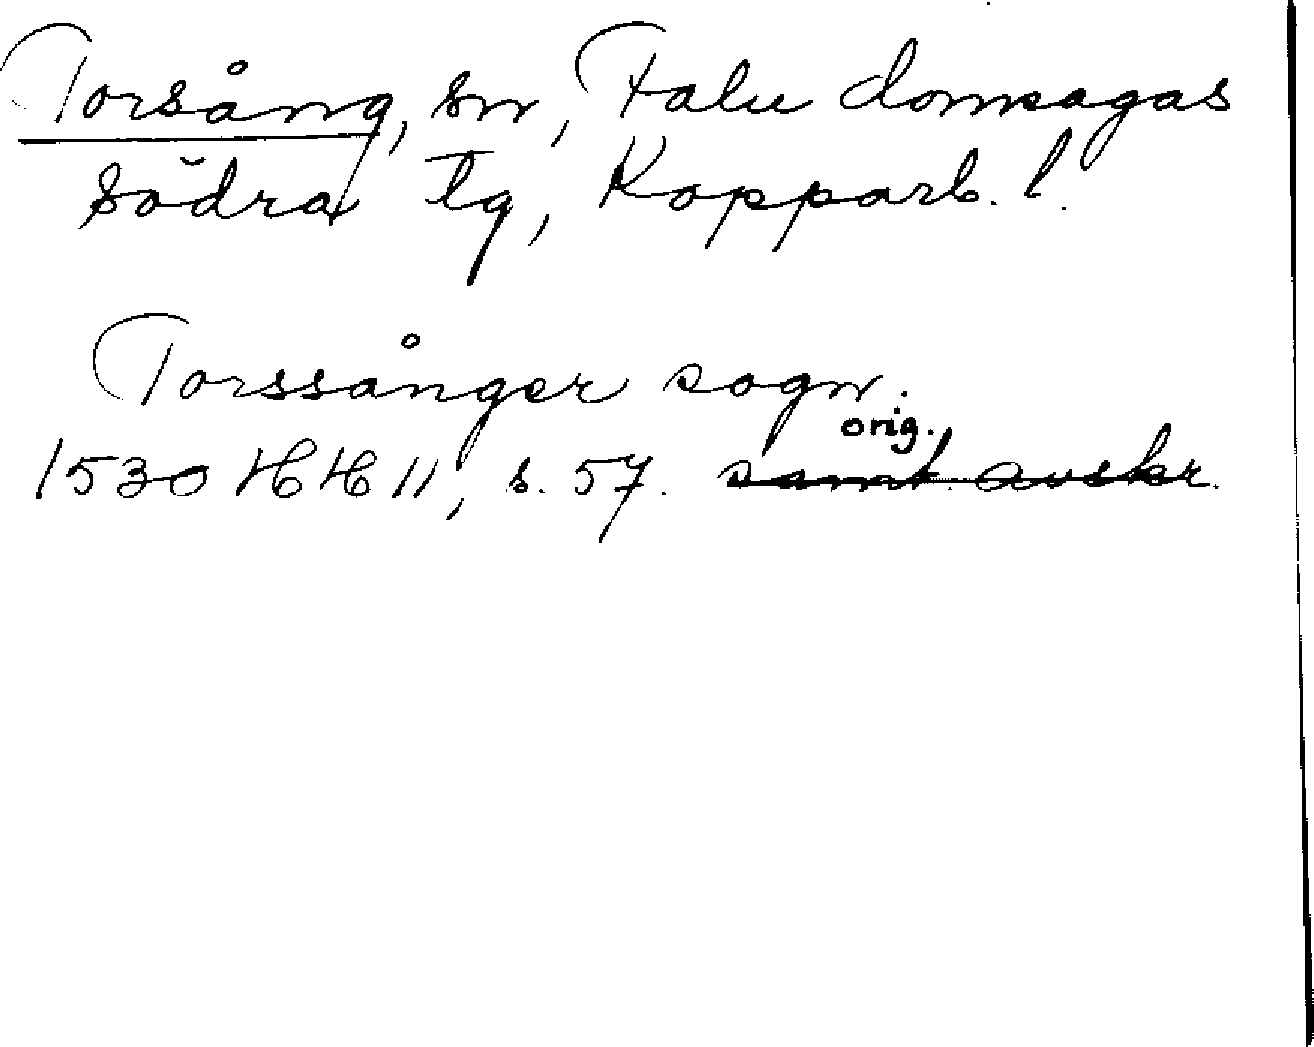 Torsång, sn, Falu domsagas
södra tg, Kopparb. l.
Torssånger sogn.
orig.
1530 HH 11, s. 57. samt. avskr.